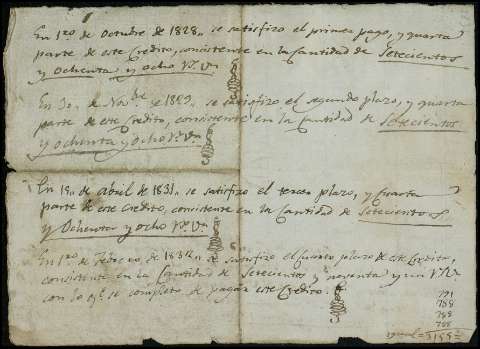 En 1ro de Octubre de 1828,, se satisfizo el primer pago, y quarta
parte de este Credito, consistente en la Cantidad de Setecientos
y Ochenta y ocho Rs. Vn
En 30,, de Nove de 1829,, se satisfizo el segundo plazo, y quarta
parte de este Credito, consistente en la Cantidad de Setecientos
y ochenta y ocho Rs. Vn
En de abril de 1831,, se satisfizo el tercer plazo, y Cuarta
parte de este Credito, consistente en la Cantidad de Setecientos
y Ochenta y ocho Rs. Vn
En 1ro de Febrero, de se satisfizo el Cuarto plazo de este Credito,
consistente en la Cantidad de Setecientos y noventa y un Rs Vn
con lo qe se completo de pagar este Credito.
791
788
788
788
3155